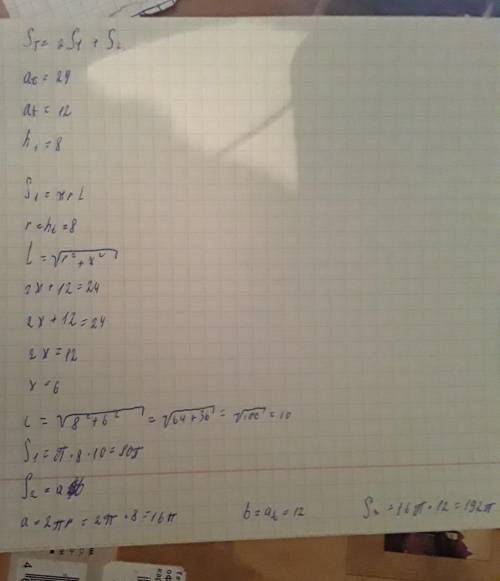 S_T = 2S_1 + S_2
a_c = 24
a_t = 12
h_1 = 8
S_1 = πrL
r = h_t = 8
L = √(r² + x²)
2x + 12 = 24
2x + 12 = 24
2x = 12
x = 6
L = √(8² + 6²) = √(64 + 36) = √100 = 10
S_1 = π · 8 · 10 = 80π
S_2 = a b
a = 2πr = 2π · 8 = 16π b = a_t = 12 S_2 = 16π · 12 = 192π